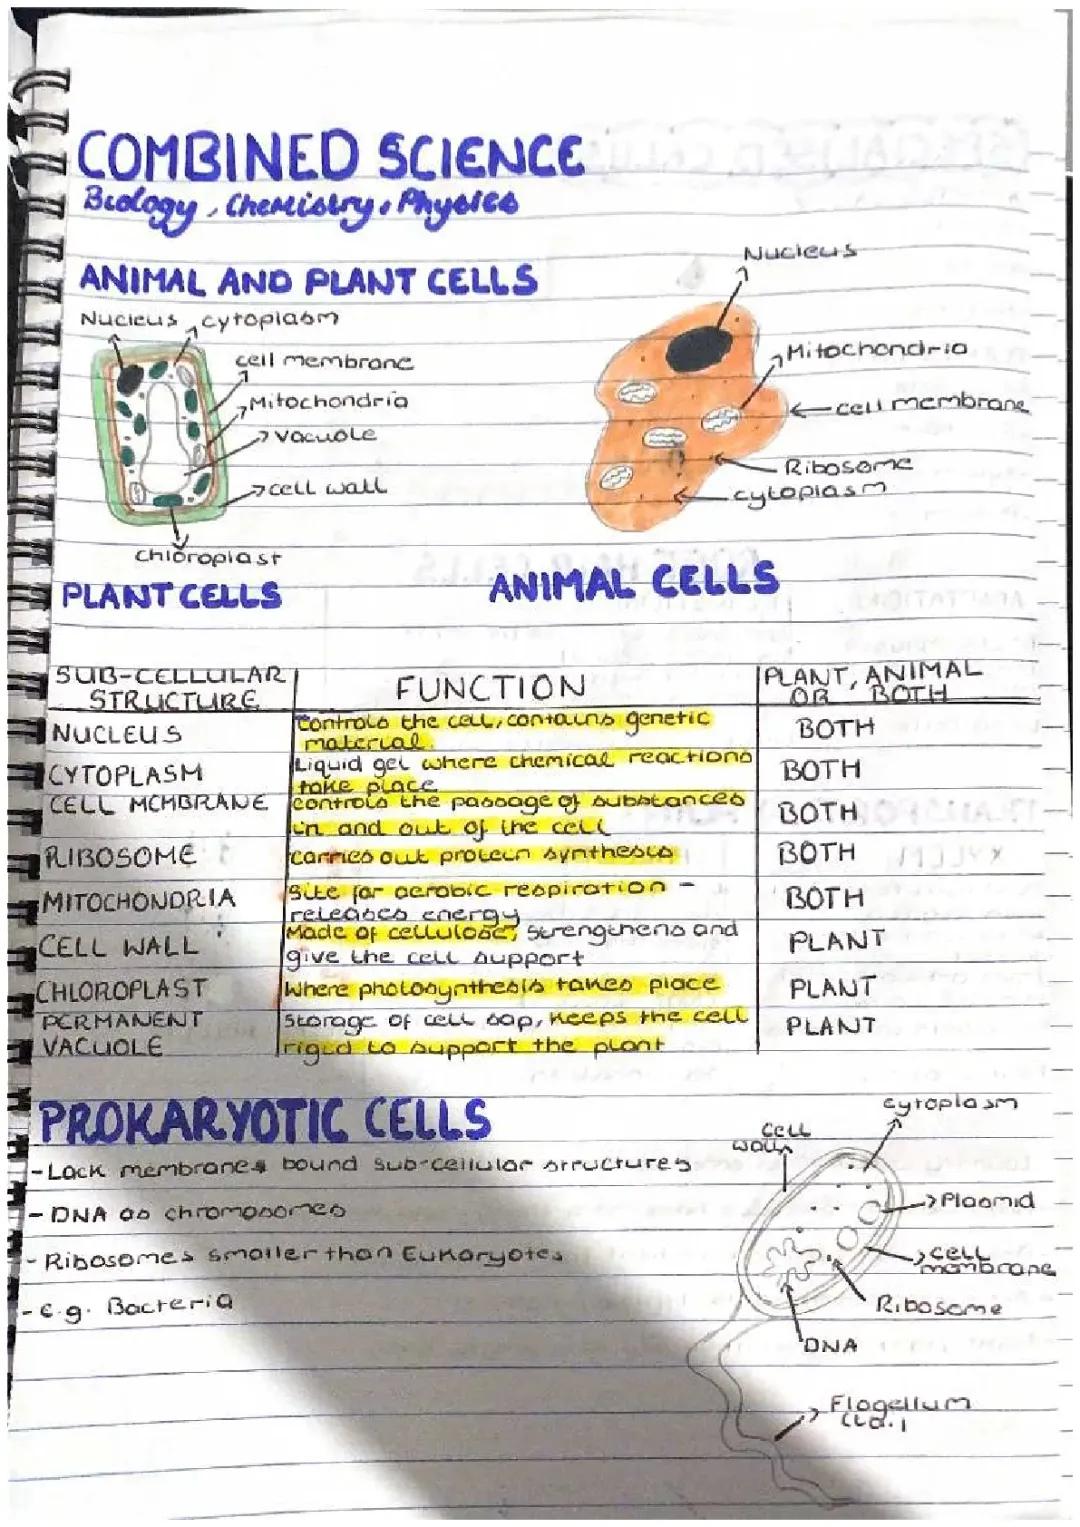 COMBINED SCIENCE
Biology, Chemistry, Physics
ANIMAL AND PLANT CELLS
Nucleus
cytoplasm
cell membrane
Mitochondria
Vacuole
cell wall
chloroplast
PLANT CELLS
Nucleus
Mitochondria
cell membrane
Ribosome
cytoplasm
ANIMAL CELLS
SUB-CELLULAR STRUCTURE
FUNCTION
PLANT, ANIMAL OR BOTH
NUCLEUS
Controls the cell, contains genetic
material.
BOTH
CYTOPLASM
Liquid gel where chemical reactions
take place
BOTH
CELL MEMBRANE
controls the passage of substances
in and out of the cell
BOTH
RIBOSOME
carries out protein synthesis
BOTH
MITOCHONDRIA
Site for aerobic respiration -
releases energy
BOTH
CELL WALL
Made of cellulose, strengthens and
give the cell support
PLANT
CHLOROPLAST
Where photosynthesis takes place
PLANT
PERMANENT
VACUOLE
Storage of cell sap, keeps the cell
rigid to support the plant
PLANT
PROKARYOTIC CELLS
- Lack membranes bound sub-cellular structures
- DNA as chromosomes
- Ribosomes smaller than Eukaryotes
- e.g. Bacteria
cytoplasm
Cell
wall
Plasmid
cell
membrane
Ribosome
DNA
Flagellum